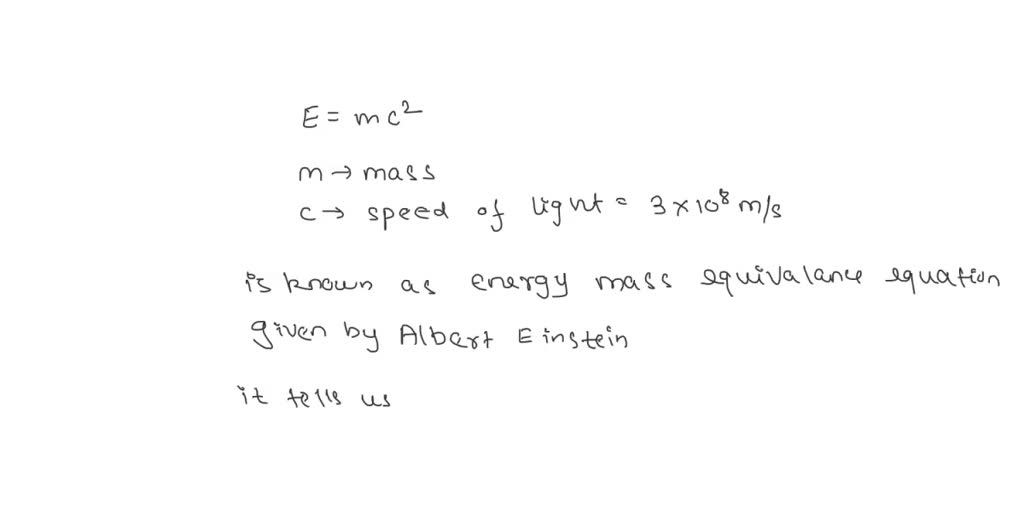 E = mc²
m → mass
c → speed of light = 3 × 10⁸ m/s
is known as energy mass equivalance equation
given by Albert Einstein
it tells us